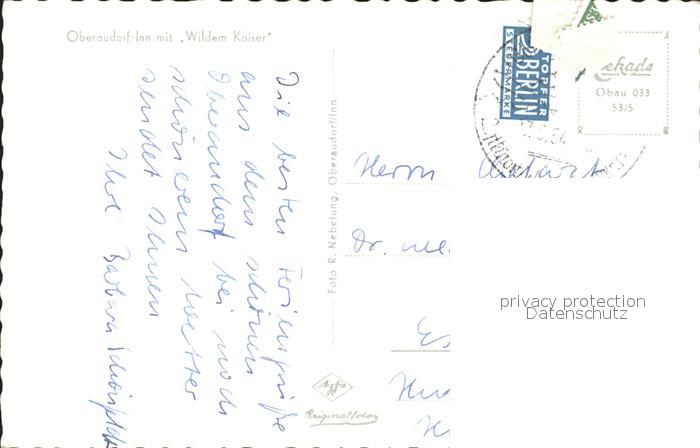 Oberaudorf/Inn mit „Wildem Kaiser"
Die besten Feriengrüße
aus dem schönen
Oberaudorf bei noch
schönerem Wetter
sendet Ihnen
Ihre Barbara
Foto R. Nebelung, Oberaudorf/Inn
Agfa
Originalfoto
NOTOPFER
2 BERLIN
STEUERMARKE
ekada
Obau 033
53/5
Herrn
Dr. me
privacy protection
Datenschutz